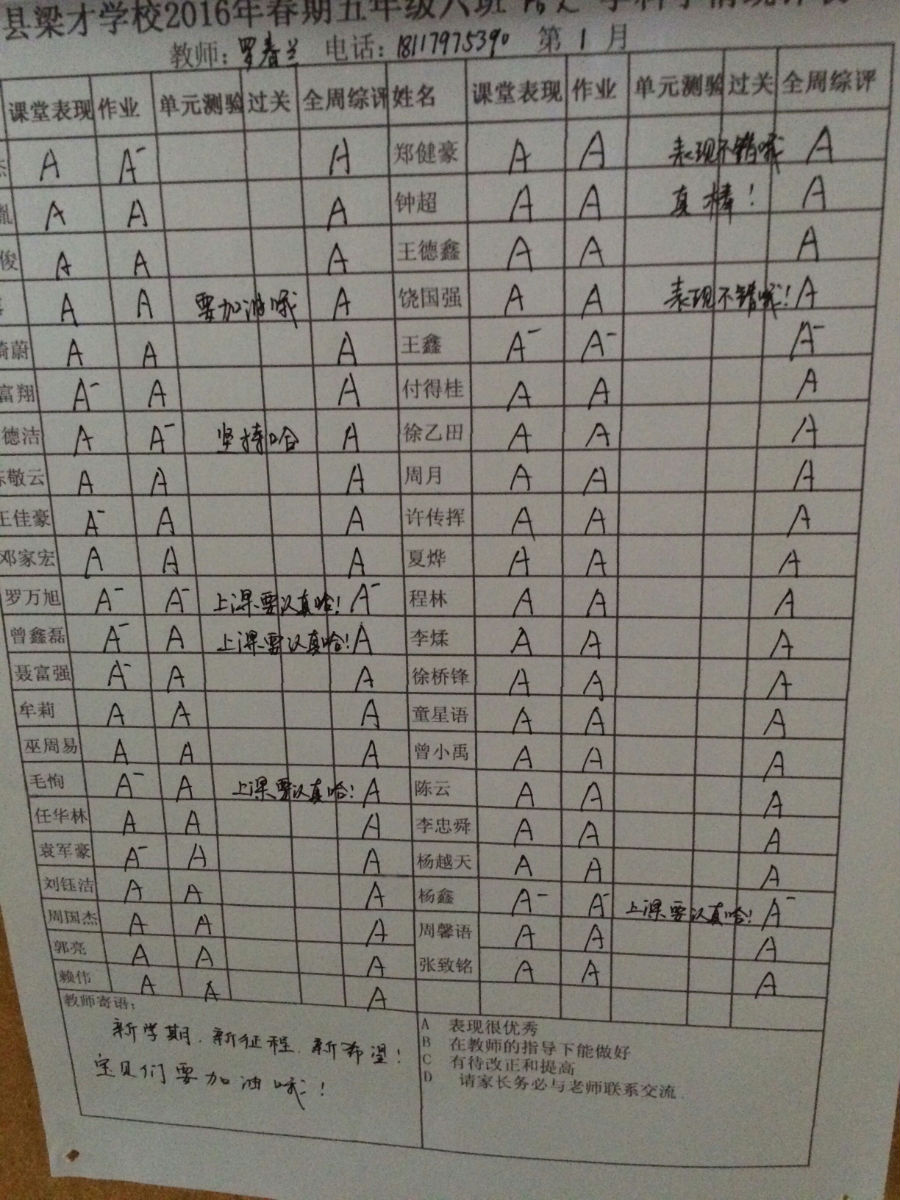 县梁才学校2016年春期五年级六班
教师：罗春兰 电话：18117975390 第 1 月
课堂表现 作业 单元测验 过关 全周综评 姓名 课堂表现 作业 单元测验 过关 全周综评
A A- A 郑健豪 A A 表现不错哦 A
A A A 钟超 A A 真棒！ A
俊 A A A 王德鑫 A A A
A A 要加油哦 A 饶国强 A A 表现不错哦！ A
蔚 A A A 王鑫 A- A- A-
富翔 A- A A 付得桂 A A A
德洁 A A- 坚持哈 A 徐乙田 A A A
敬云 A A A 周月 A A A
王佳豪 A- A A 许传挥 A A A
邓家宏 A A A 夏烨 A A A
罗万旭 A- A- 上课要认真哈！ A- 程林 A A A
曾鑫磊 A- A 上课要认真哈！ A 李煣 A A A
聂富强 A- A A 徐桥锋 A A A
牟莉 A A A 童星语 A A A
巫周易 A A A 曾小禹 A A A
毛恂 A- A 上课要认真哈！ A 陈云 A A A
任华林 A A A 李忠舜 A A A
袁军豪 A- A A 杨越天 A A A
刘钰洁 A A A 杨鑫 A- A- 上课要认真哈！ A-
周国杰 A A A 周馨语 A A A
郭亮 A A A 张致铭 A A A
赖伟 A A A
教师寄语：
新学期、新征程、新希望！
宝贝们要加油哦！
A 表现很优秀
B 在教师的指导下能做好
C 有待改正和提高
D 请家长务必与老师联系交流.